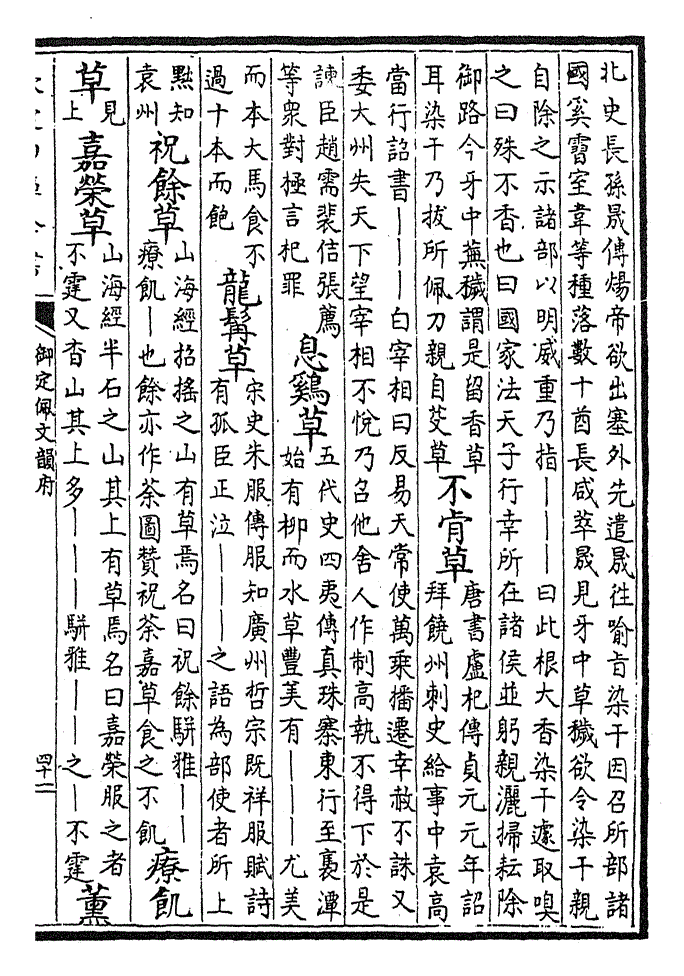 北史長孫晟傳煬帝欲出塞外先遣晟往喻㫖染干因召所部諸
國奚霫室韋等種落數十酋長咸萃晟見牙中草穢欲令染干親
自除之示諸部以明威重乃指————曰此根大香染干遽取嗅
之曰殊不香也曰國家法天子行幸所在諸侯並躬親灑掃耘除
御路今牙中蕪穢謂是留香草
耳染干乃拔所佩刀親自芟草
不肯草
唐書盧杞傳貞元元年詔
拜饒州刺史給事中袁高
當行詔書———白宰相曰反易天常使萬乘播遷幸赦不誅又
委大州失天下望宰相不悅乃召他舍人作制高執不得下於是
諫臣趙需裴佶張薦
等衆對極言杞罪
息鷄草
五代史四夷傳真珠寨東行至裹潭
始有柳而水草豐美有———尤美
而本大馬食不
過十本而飽
龍髯草
宋史朱服傳服知廣州哲宗既祥服賦詩
有孤臣正泣———之語為部使者所上
黜知
袁州
祝餘草
山海經招搖之山有草焉名曰祝餘駢雅——
療飢—也餘亦作荼圖贊祝荼嘉草食之不飢
療飢
草
見
上
嘉榮草
山海經半石之山其上有草焉名曰嘉榮服之者
不霆又杳山其上多———駢雅——之—不霆
薰
御定佩文韻府
四十二